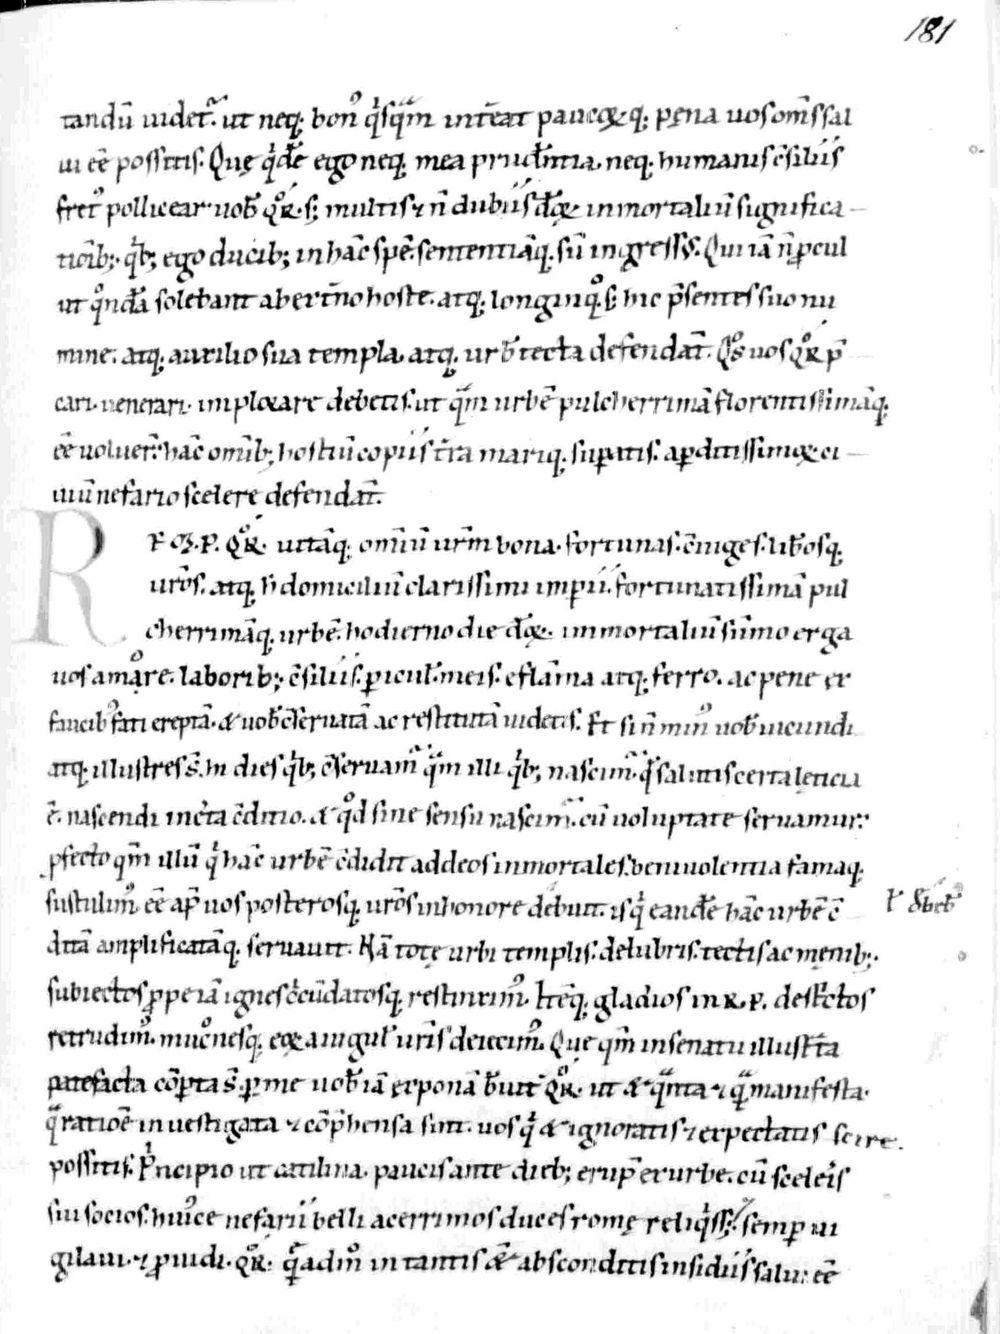 181
tandū uidet᷑. ut neq; bon⁹ qͥsq̃m intēat paucoꝝq; pęna uos om̄s sal
ui eē possitis. Quę q̇dē ego neq; mea prudentia, neq; humanis c̄siliis
fret⁹ pollicear uob̄ q̊ʀ. s; multis ⁊ n̄ dubiis dōꝝ inmortaliū significa
tioīb;. q̇b; ego ducib; in hāc spē. sententiāq; sū ingress⁹. Qui iā n̄ ꝓcul
ut q̊ndā solebant ab ext̄no hoste. atq; longinq̊. s; hic p̄sentes suo nu
mine. atq; auxilio sua templa, atq; urb̄ tecta defendāt. Q̊s uos q̊ʀ p̄
cari. uenerari. implorare debetis. ut q̄m urbē pulcherrimā florentissimāq;
eē uoluer̄. hāc omīb; hostiū copiis t̄ra mariq; suꝑatis. a ꝑditissimoꝝ ci
uiū nefario scelere defendāt.
R EM.P. q̊ʀ. uitāq; om̄iū ur̄m bona. fortunas. c̄iuges. lib̄osq;
ur̄os. atq; h̄ domiciliū clarissimi imꝑii. fortunatissimā pul
cherrimāq; urbē. hodierno die dōꝝ. inmortaliū sūmo erga
uos amore. laborib; c̄siliis. ꝑicul̄ meis. e flāma atq; ferro. ac pene ex
faucib⁹ fati ereptā. & uob̄ c̄seruatā ac restitutā uidetis. Et si n̄ min⁹ nob̄ iucundi
atq; illustres s̄. hi dies q̇b; c̄seruam᷑ q̃m illi q̇b; nascim᷑. q̇ salutis certa lęticia
ē. nascendi inc̄ta c̄ditio. & q̊d sine sensu nascim᷑. cū uoluptate seruamur:
ꝓfecto qm̄ illū q̇ hāc urbē c̄didit ad deos inmortales. beniuolentia famaq;
sustulim⁹. eē ap̄ uos posterosq; ur̄os in honore debuit. is q̇ eandē hāc urbē c̄
l̄ debeb̄
ditā amplificatāq; seruauit. Nā totę urbi templis. delubris. tectis ac męnib;.
subiectos ꝓpe iā ignes c̄cūdatosq; restinxim⁹. Itēq; gladios in ʀ.p. destrictos
retrudim⁹. mucronesq; eoꝝ a iugul̄ ur̄is deiecim⁹. Que qm̄ in senatu illustrata
patefacta cōꝑta s̄. ꝑ me uob̄ iā exponā breuit᷑ q̊ʀ. ut & q̃nta ⁊ q̃ manifesta.
q̃ ratiōe inuestigata ⁊ cōp̄hensa sint. uos q̇ & ignoratis ⁊ expectatis scire.
possitis. Principio ut catilina. paucis ante dieb; erup̄ ex urbe. cū sceleris
sui socios. hui⁹ce nefarii belli acerrimos duces romę reliq̇ss;. semꝑ ui
gilaui. ⁊ ꝓuidi. q̊ʀ. q̃adm⁹ in tantis & absconditis insidiis salui eē